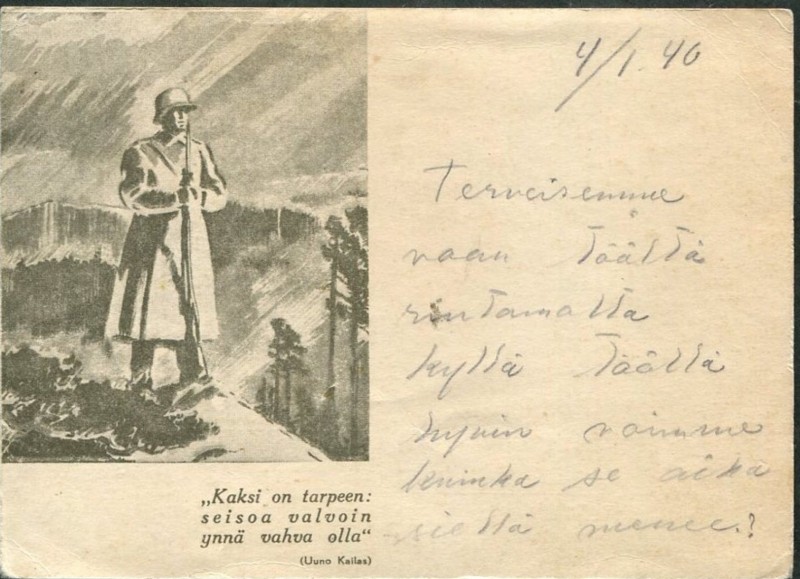 4/1.40
Terveisemme
vaan täältä
rintamalta
kyllä täällä
hyvin voimme
kuinka se aika
siellä menee.?
„Kaksi on tarpeen:
seisoa valvoin
ynnä vahva olla“
(Uuno Kailas)